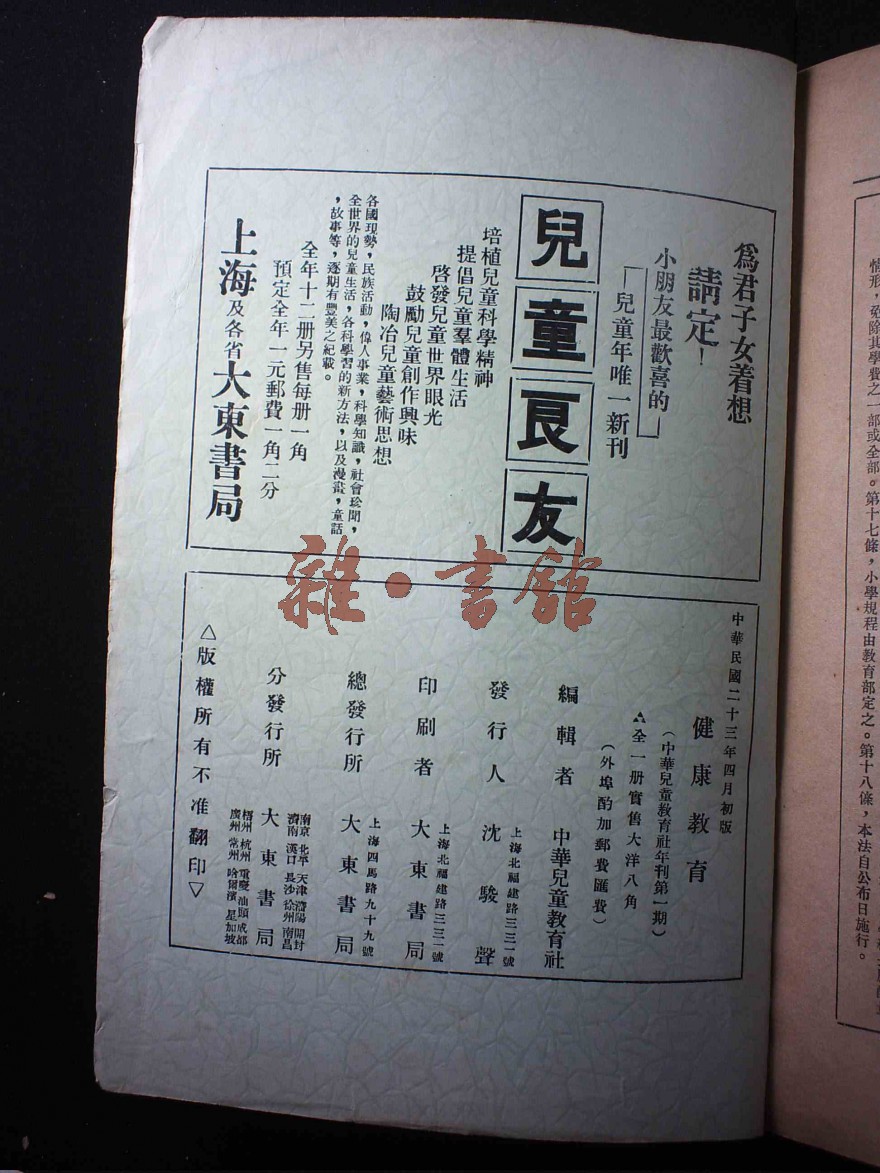 爲君子女着想
請定！
小朋友最歡喜的
兒童年唯一新刊
兒童良友
培植兒童科學精神
提倡兒童羣體生活
啓發兒童世界眼光
鼓勵兒童創作興味
陶冶兒童藝術思想
各國現勢，民族活動，偉人事業，科學知識，社會珍聞，
全世界的兒童生活，各科學習的新方法，以及漫畫，童話
，故事等，逐期有豐美之紀載。
全年十二册另售每册一角
預定全年一元郵費一角二分
上海及各省大東書局
雜·書館
中華民國二十三年四月初版
健康教育
（中華兒童教育社年刊第一期）
全一册實售大洋八角
（外埠酌加郵費匯費）
編輯者 中華兒童教育社
上海北福建路三三一號
發行人 沈駿聲
上海北福建路三三一號
印刷者 大東書局
上海四馬路九十九號
總發行所 大東書局
分發行所 大東書局
南京 北平 天津 瀋陽 開封
濟南 漢口 長沙 徐州 南昌
梧州 杭州 重慶 汕頭 成都
廣州 常州 哈爾濱 星加坡
△版權所有不准翻印▽
情形，免除其學費之一部或全部。第十七條，小學規程由教育部定之。第十八條，本法自公布日施行。